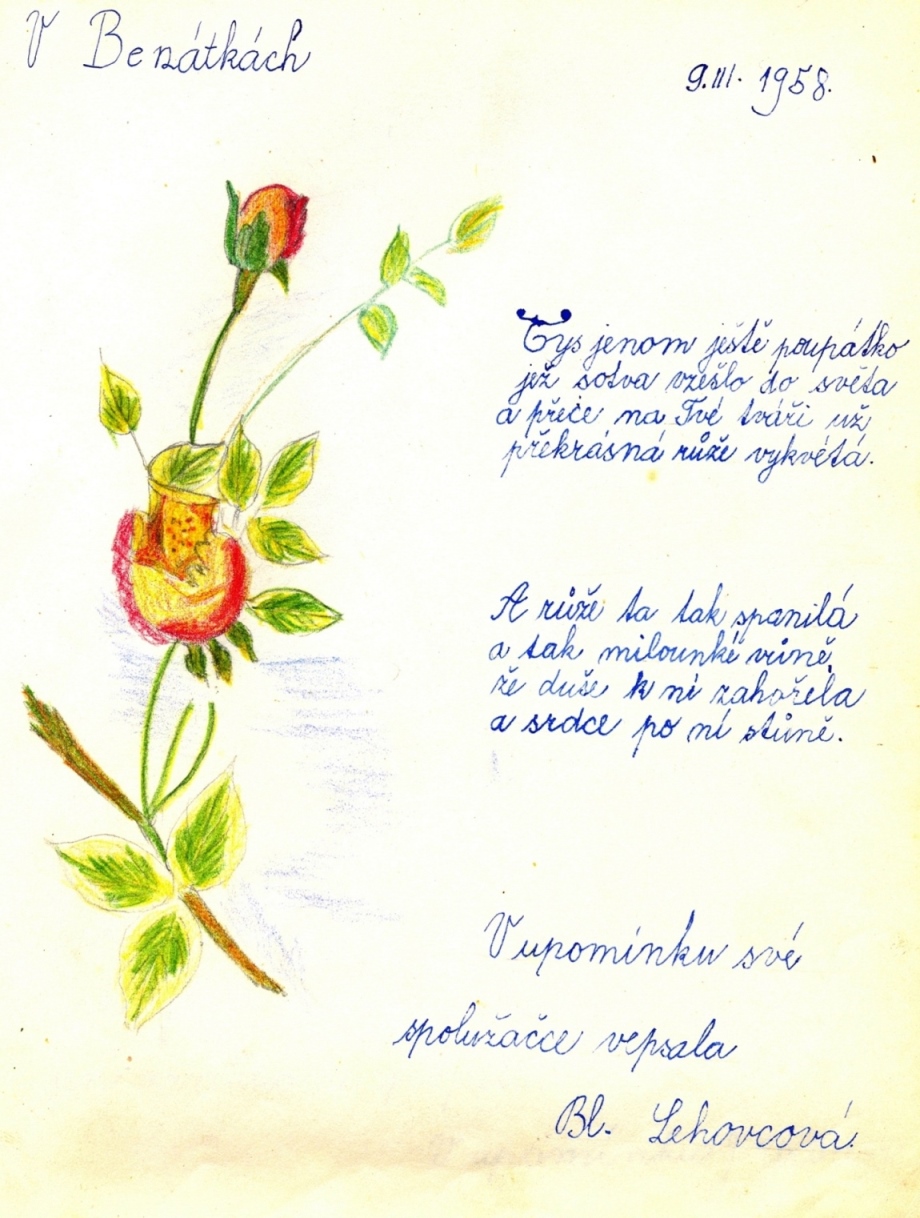 V Benátkách
9.III. 1958.
Tys jenom ještě poupátko
jež sotva vzešlo do světa
a přece na Tvé tváři už
překrásná růže vykvétá.
A růže ta tak spanilá
a tak milounké vůně,
že duše k ní zahořela
a srdce po ní stůně.
V upomínku své
spolužačce vepsala
Bl. Lehovcová.